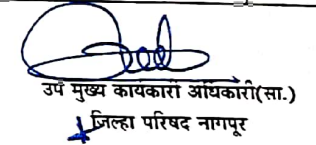 उप मुख्य कार्यकारी अधिकारी(सा.)
जिल्हा परिषद नागपूर